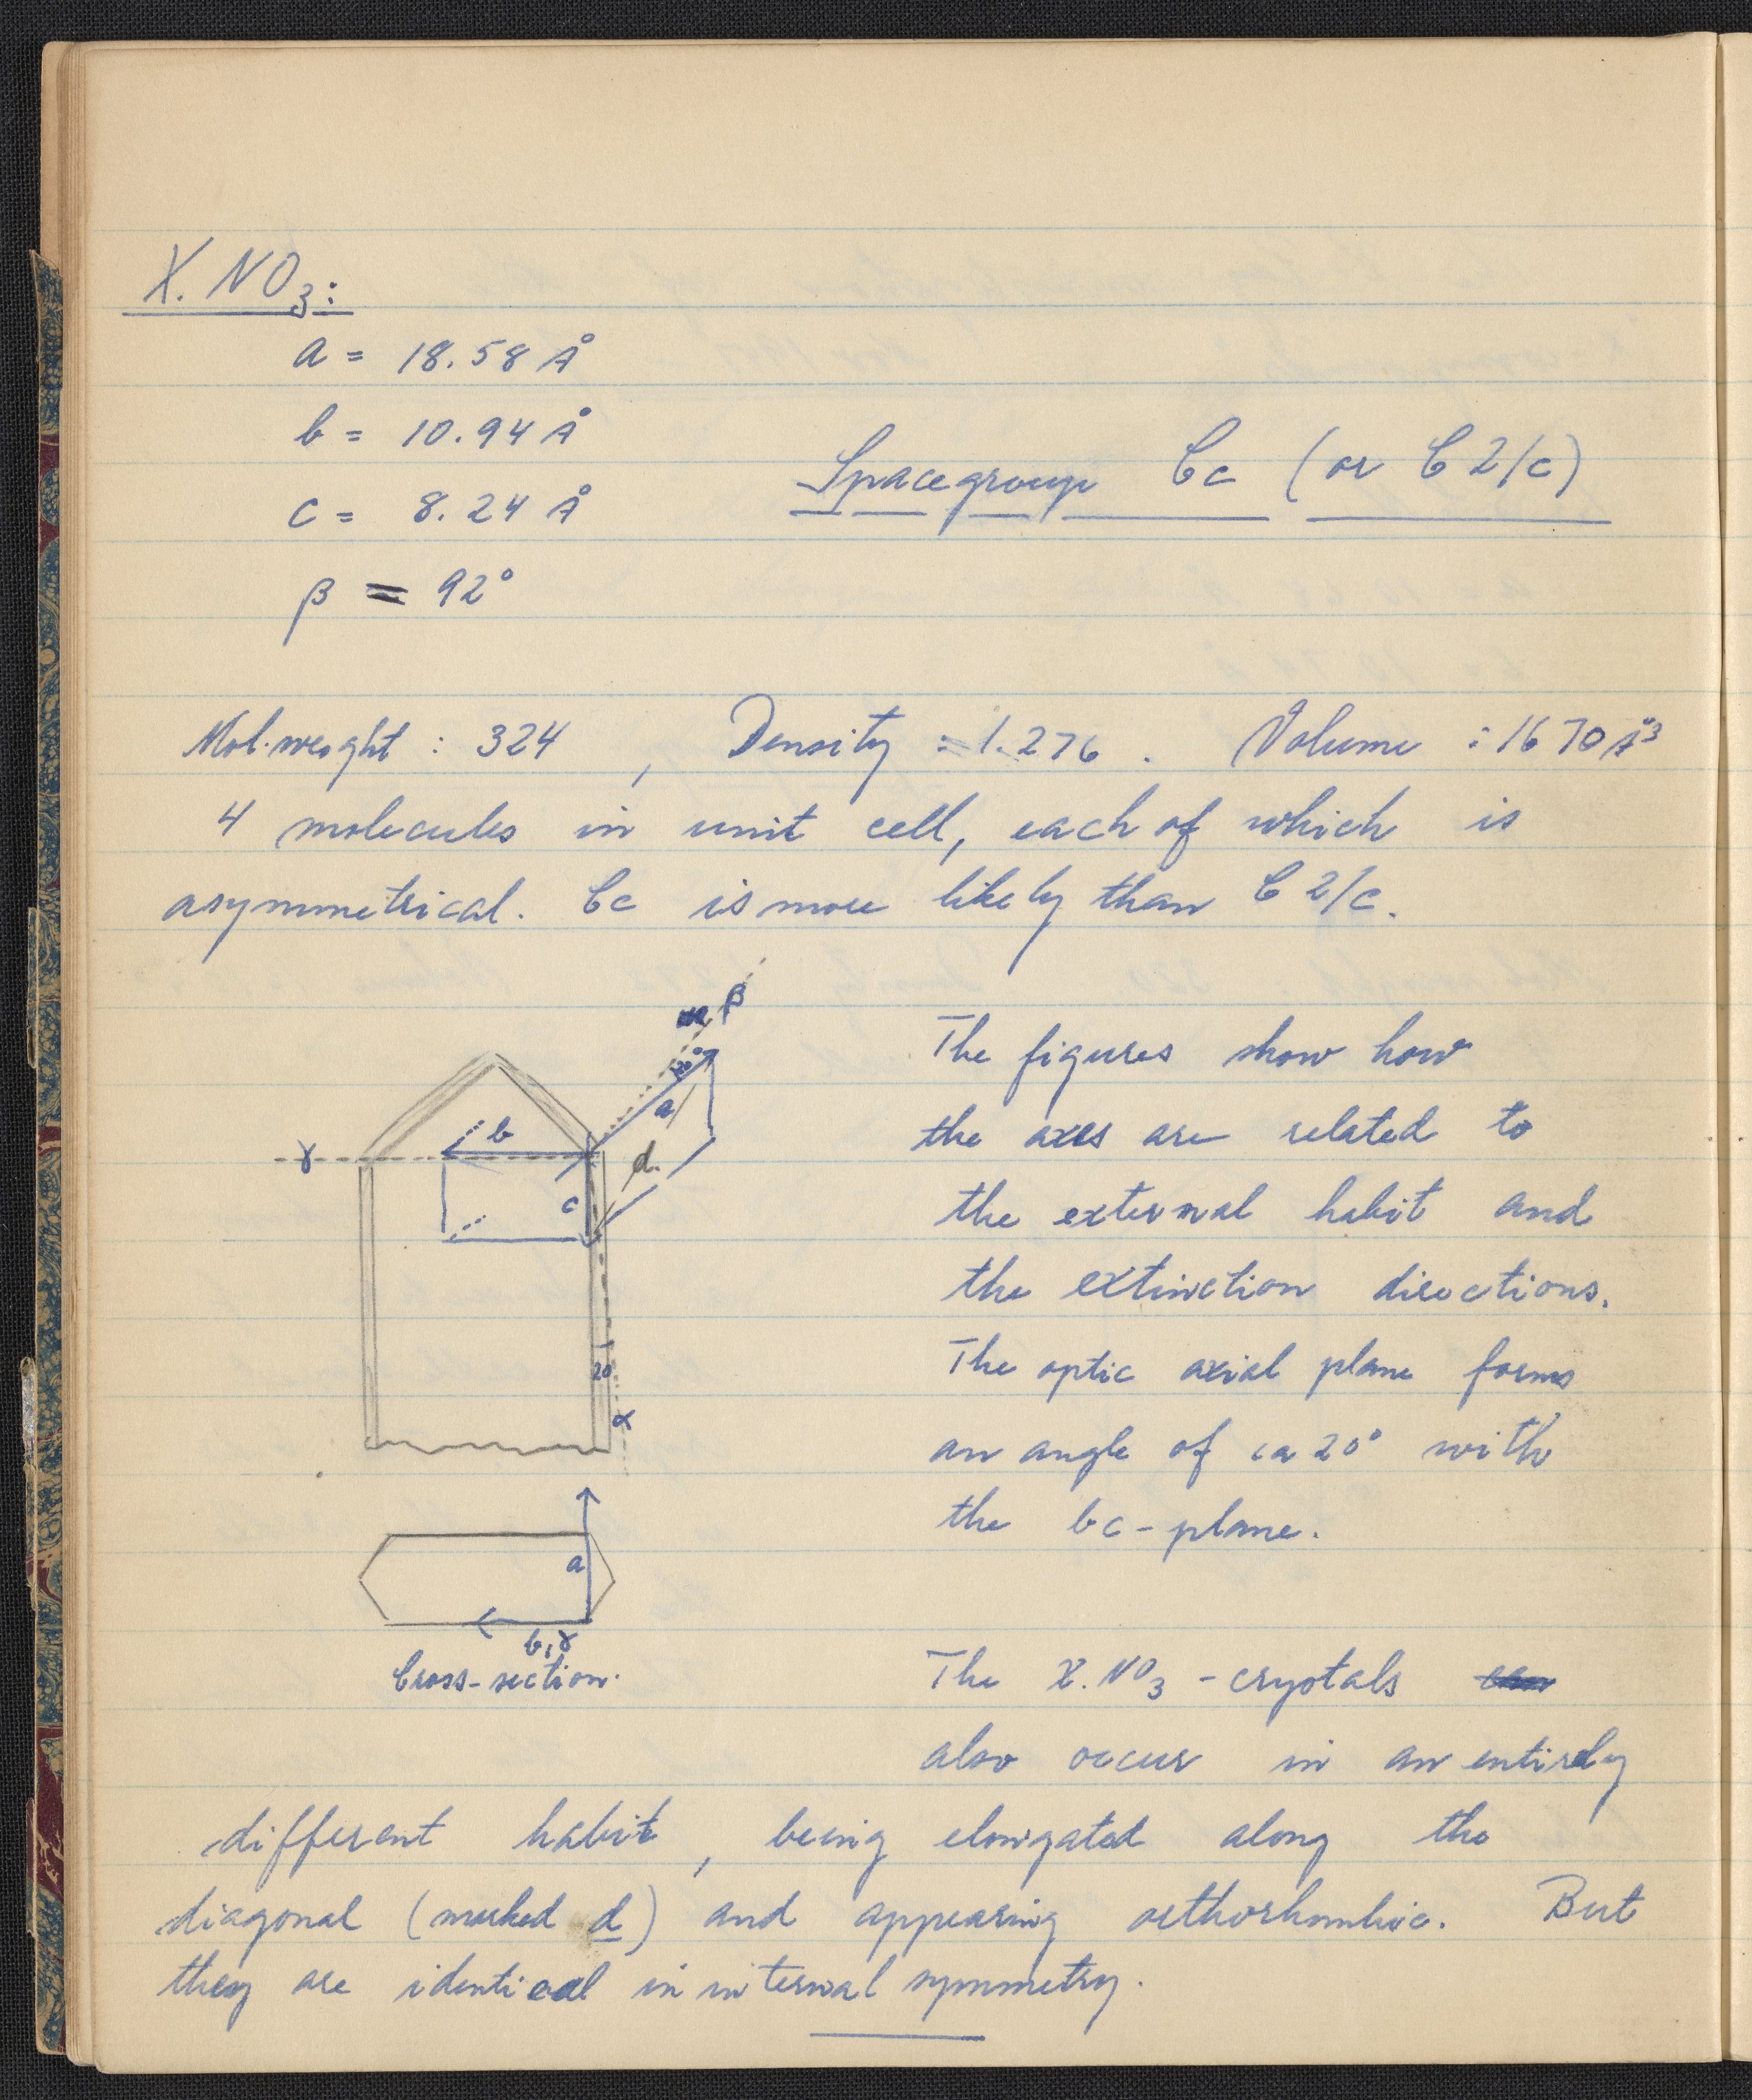 X. NO3:
a = 18.58 Å
b = 10.94 Å
Spacegroup Cc (or C 2/c)
c = 8.24 Å
β = 92°
Mol. weight : 324 , Density = 1.276 . Volume : 1670 Å3
4 molecules in unit cell, each of which is
asymmetrical. Cc is more likely than C 2/c.
β
20°
a
b
γ
d.
c
20
α
The figures show how
the axes are related to
the external habit and
the extinction directions.
The optic axial plane forms
an angle of ca 20° with
the bc-plane.
a
b, γ
Cross-section.
The X.NO3 - crystals
also occur in an entirely
different habit , being elongated along the
diagonal (marked d) and appearing orthorhombic. But
they are identical in internal symmetry.